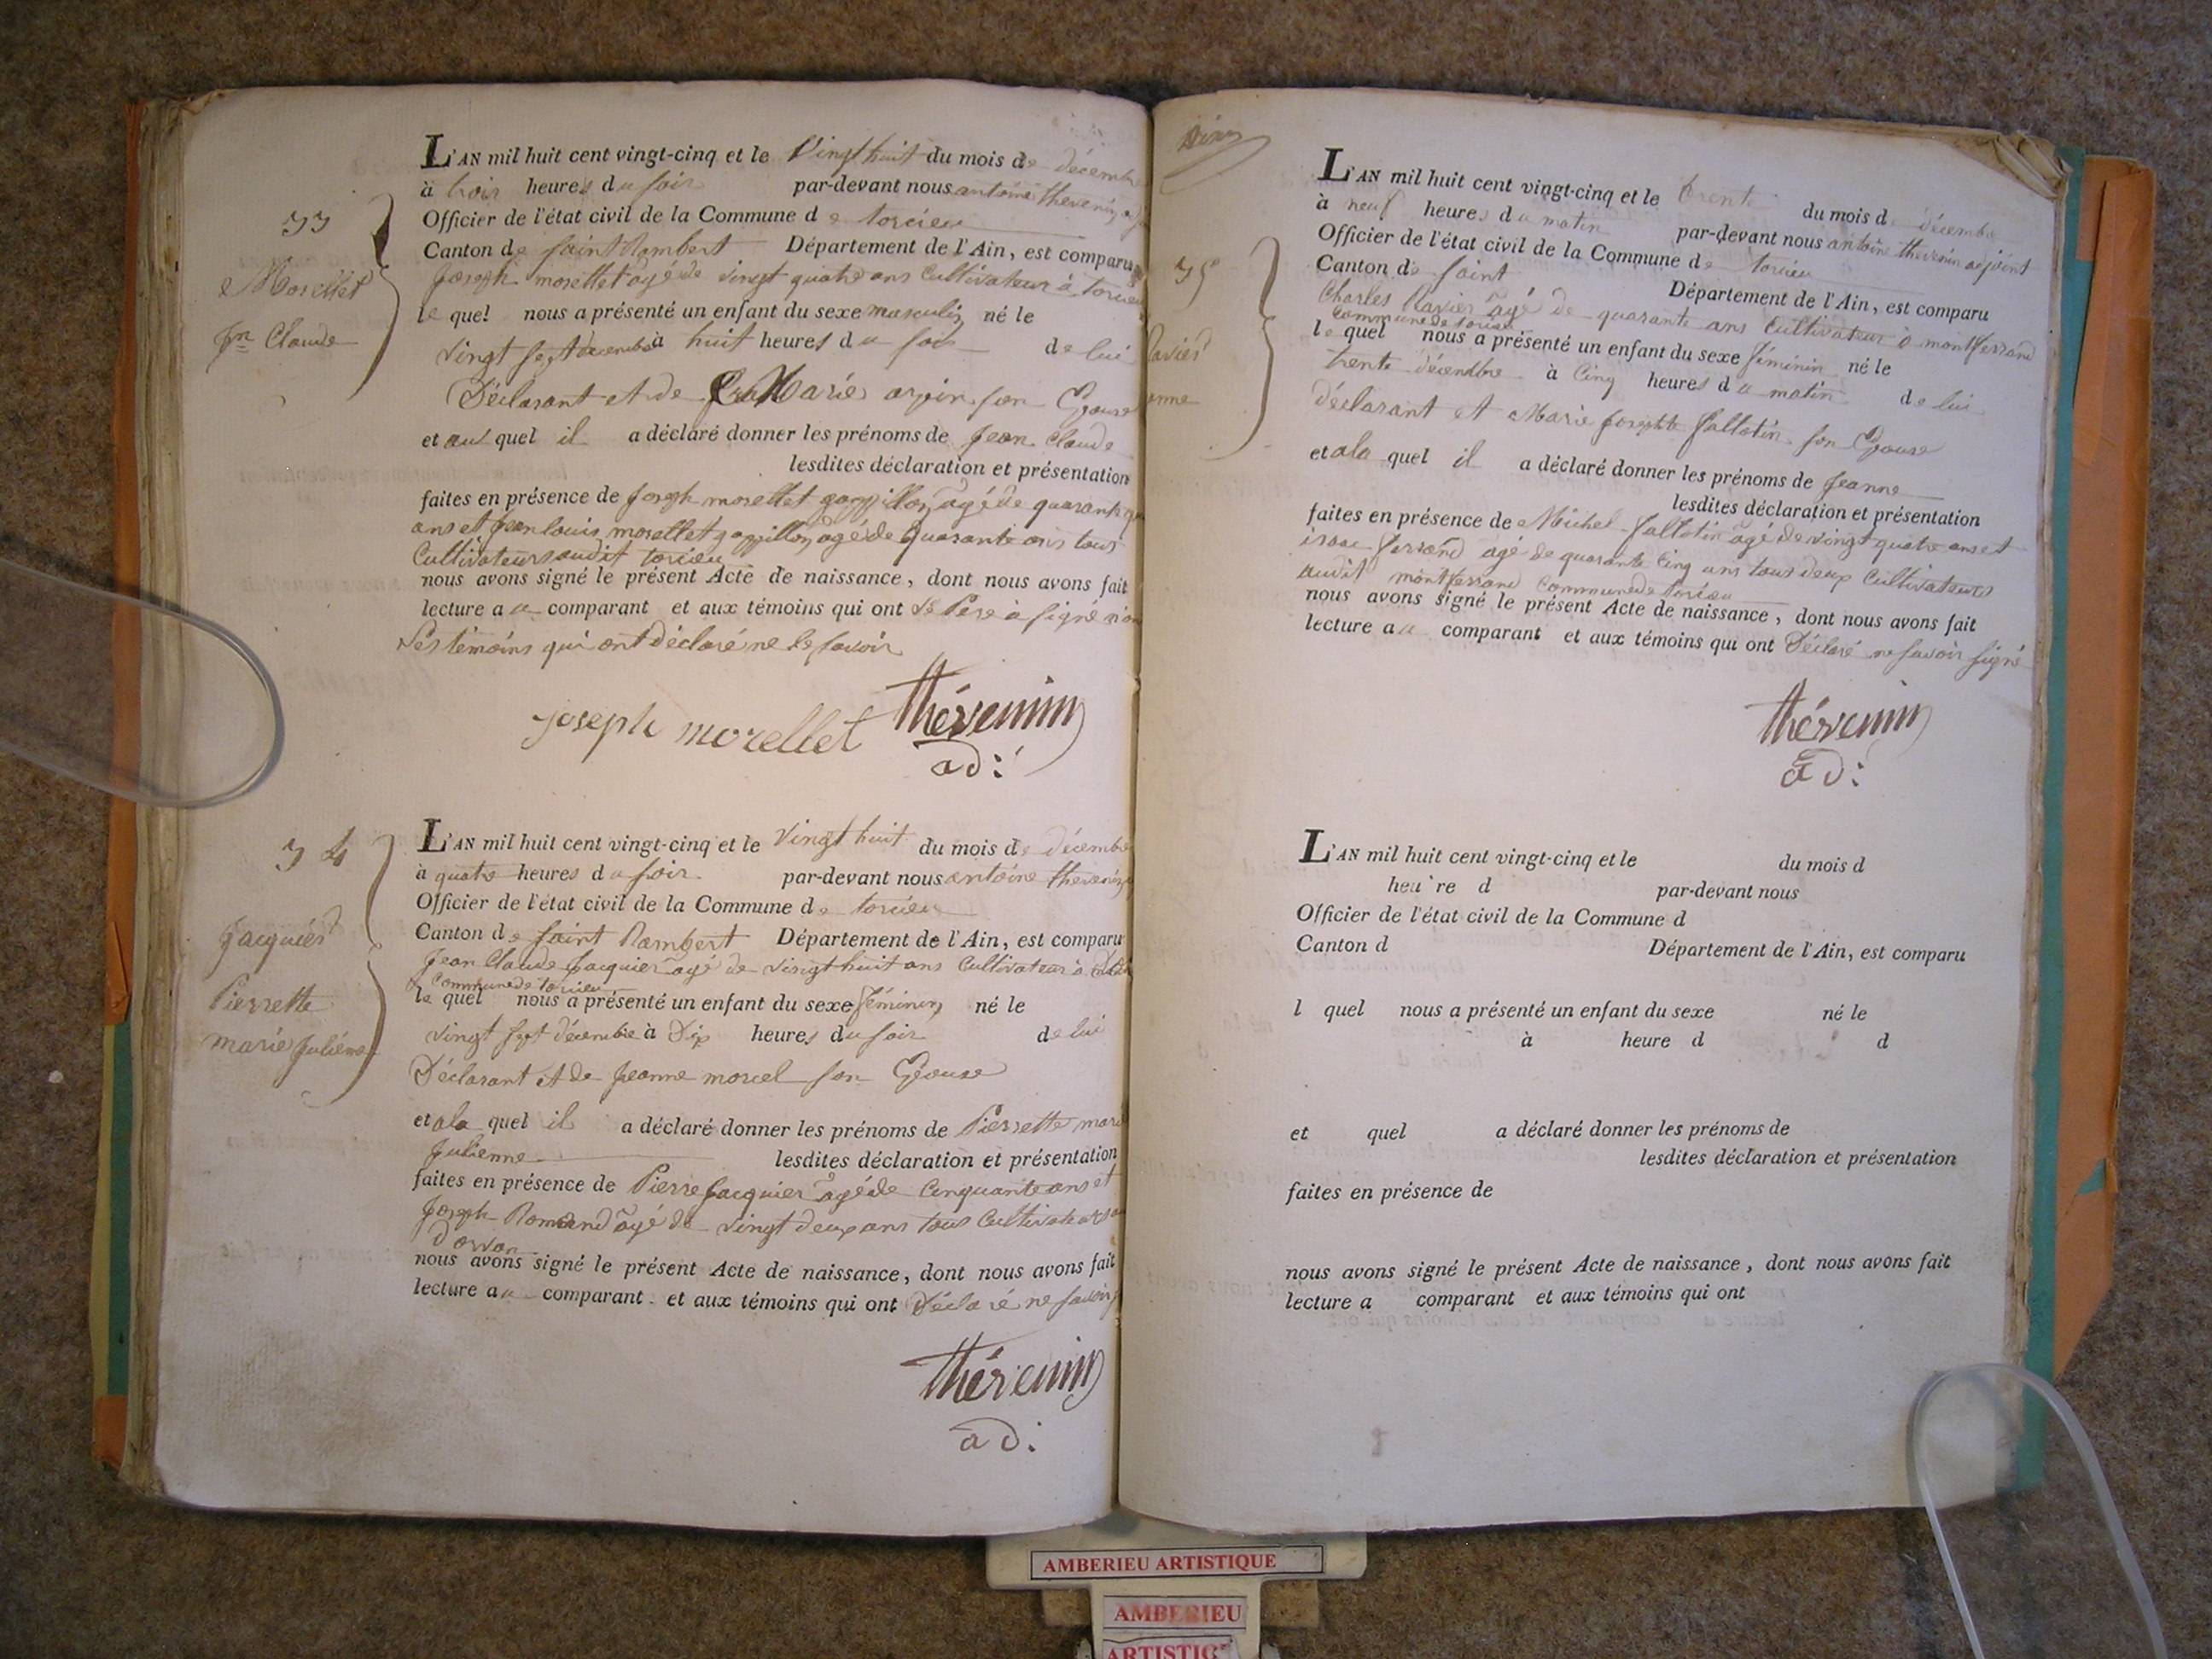 33
Morellet
Jn Claude
L'AN mil huit cent vingt-cinq et le Vingt huit du mois de décembre
à trois heures du soir par-devant nous antoine thevenin
Officier de l'état civil de la Commune de torcieu
Canton de saint Rambert Département de l'Ain, est comparu
Joseph morellet agé de vingt quatre ans Cultivateur à torcieu
le quel nous a présenté un enfant du sexe masculin né le
vingt sept décembre à huit heures du soir de lui
Déclarant et de Marie arpin son Epouse
et au quel il a déclaré donner les prénoms de Jean Claude
lesdites déclaration et présentation
faites en présence de Joseph morellet agé de quarante
ans et Jean louis morellet agé de quarante ans tous
Cultivateurs audit torcieu
nous avons signé le présent Acte de naissance, dont nous avons fait
lecture au comparant et aux témoins qui ont Le Pere à signé non
Les témoins qui ont déclaré ne le savoir
joseph morellet thévenin
ad:
34
Jacquier
Pierrette
marie Julienne
L'AN mil huit cent vingt-cinq et le Vingt huit du mois de décembre
à quatre heures du soir par-devant nous antoine thevenin
Officier de l'état civil de la Commune de torcieu
Canton de saint Rambert Département de l'Ain, est comparu
Jean Claude Jacquier agé de vingt huit ans Cultivateur à
Commune de torcieu
le quel nous a présenté un enfant du sexe féminin né le
vingt sept décembre à Dix heures du soir de lui
Déclarant et de Jeanne morel son Epouse
et a la quel il a déclaré donner les prénoms de Pierrette marie
Julienne lesdites déclaration et présentation
faites en présence de Pierre Jacquier agé de Cinquante ans et
Joseph Romand agé de vingt deux ans tous Cultivateurs
Dorvan
nous avons signé le présent Acte de naissance, dont nous avons fait
lecture au comparant et aux témoins qui ont Déclaré ne savoir
thévenin
ad:
35
Ravier
enne
L'AN mil huit cent vingt-cinq et le trente du mois de décembre
à neuf heures du matin par-devant nous antoine thevenin adjoint
Officier de l'état civil de la Commune de torcieu
Canton de saint Département de l'Ain, est comparu
Charles Ravier agé de quarante ans Cultivateur à montferrand
Commune de torcieu
le quel nous a présenté un enfant du sexe féminin né le
trente décembre à Cinq heures du matin de lui
déclarant et Marie Josephte fallotin son Epouse
et a la quel il a déclaré donner les prénoms de Jeanne
lesdites déclaration et présentation
faites en présence de Michel fallotin agé de vingt quatre ans et
isaac ferrand agé de quarante Cinq ans tous deux Cultivateurs
audit montferrand Commune de torcieu
nous avons signé le présent Acte de naissance, dont nous avons fait
lecture au comparant et aux témoins qui ont Déclaré ne savoir signé
thévenin
ad:
L'AN mil huit cent vingt-cinq et le du mois d
heure d par-devant nous
Officier de l'état civil de la Commune d
Canton d Département de l'Ain, est comparu
l quel nous a présenté un enfant du sexe né le
à heure d d
et quel a déclaré donner les prénoms de
lesdites déclaration et présentation
faites en présence de
nous avons signé le présent Acte de naissance, dont nous avons fait
lecture a comparant et aux témoins qui ont
AMBERIEU ARTISTIQUE
AMBERIEU
ARTISTIQUE